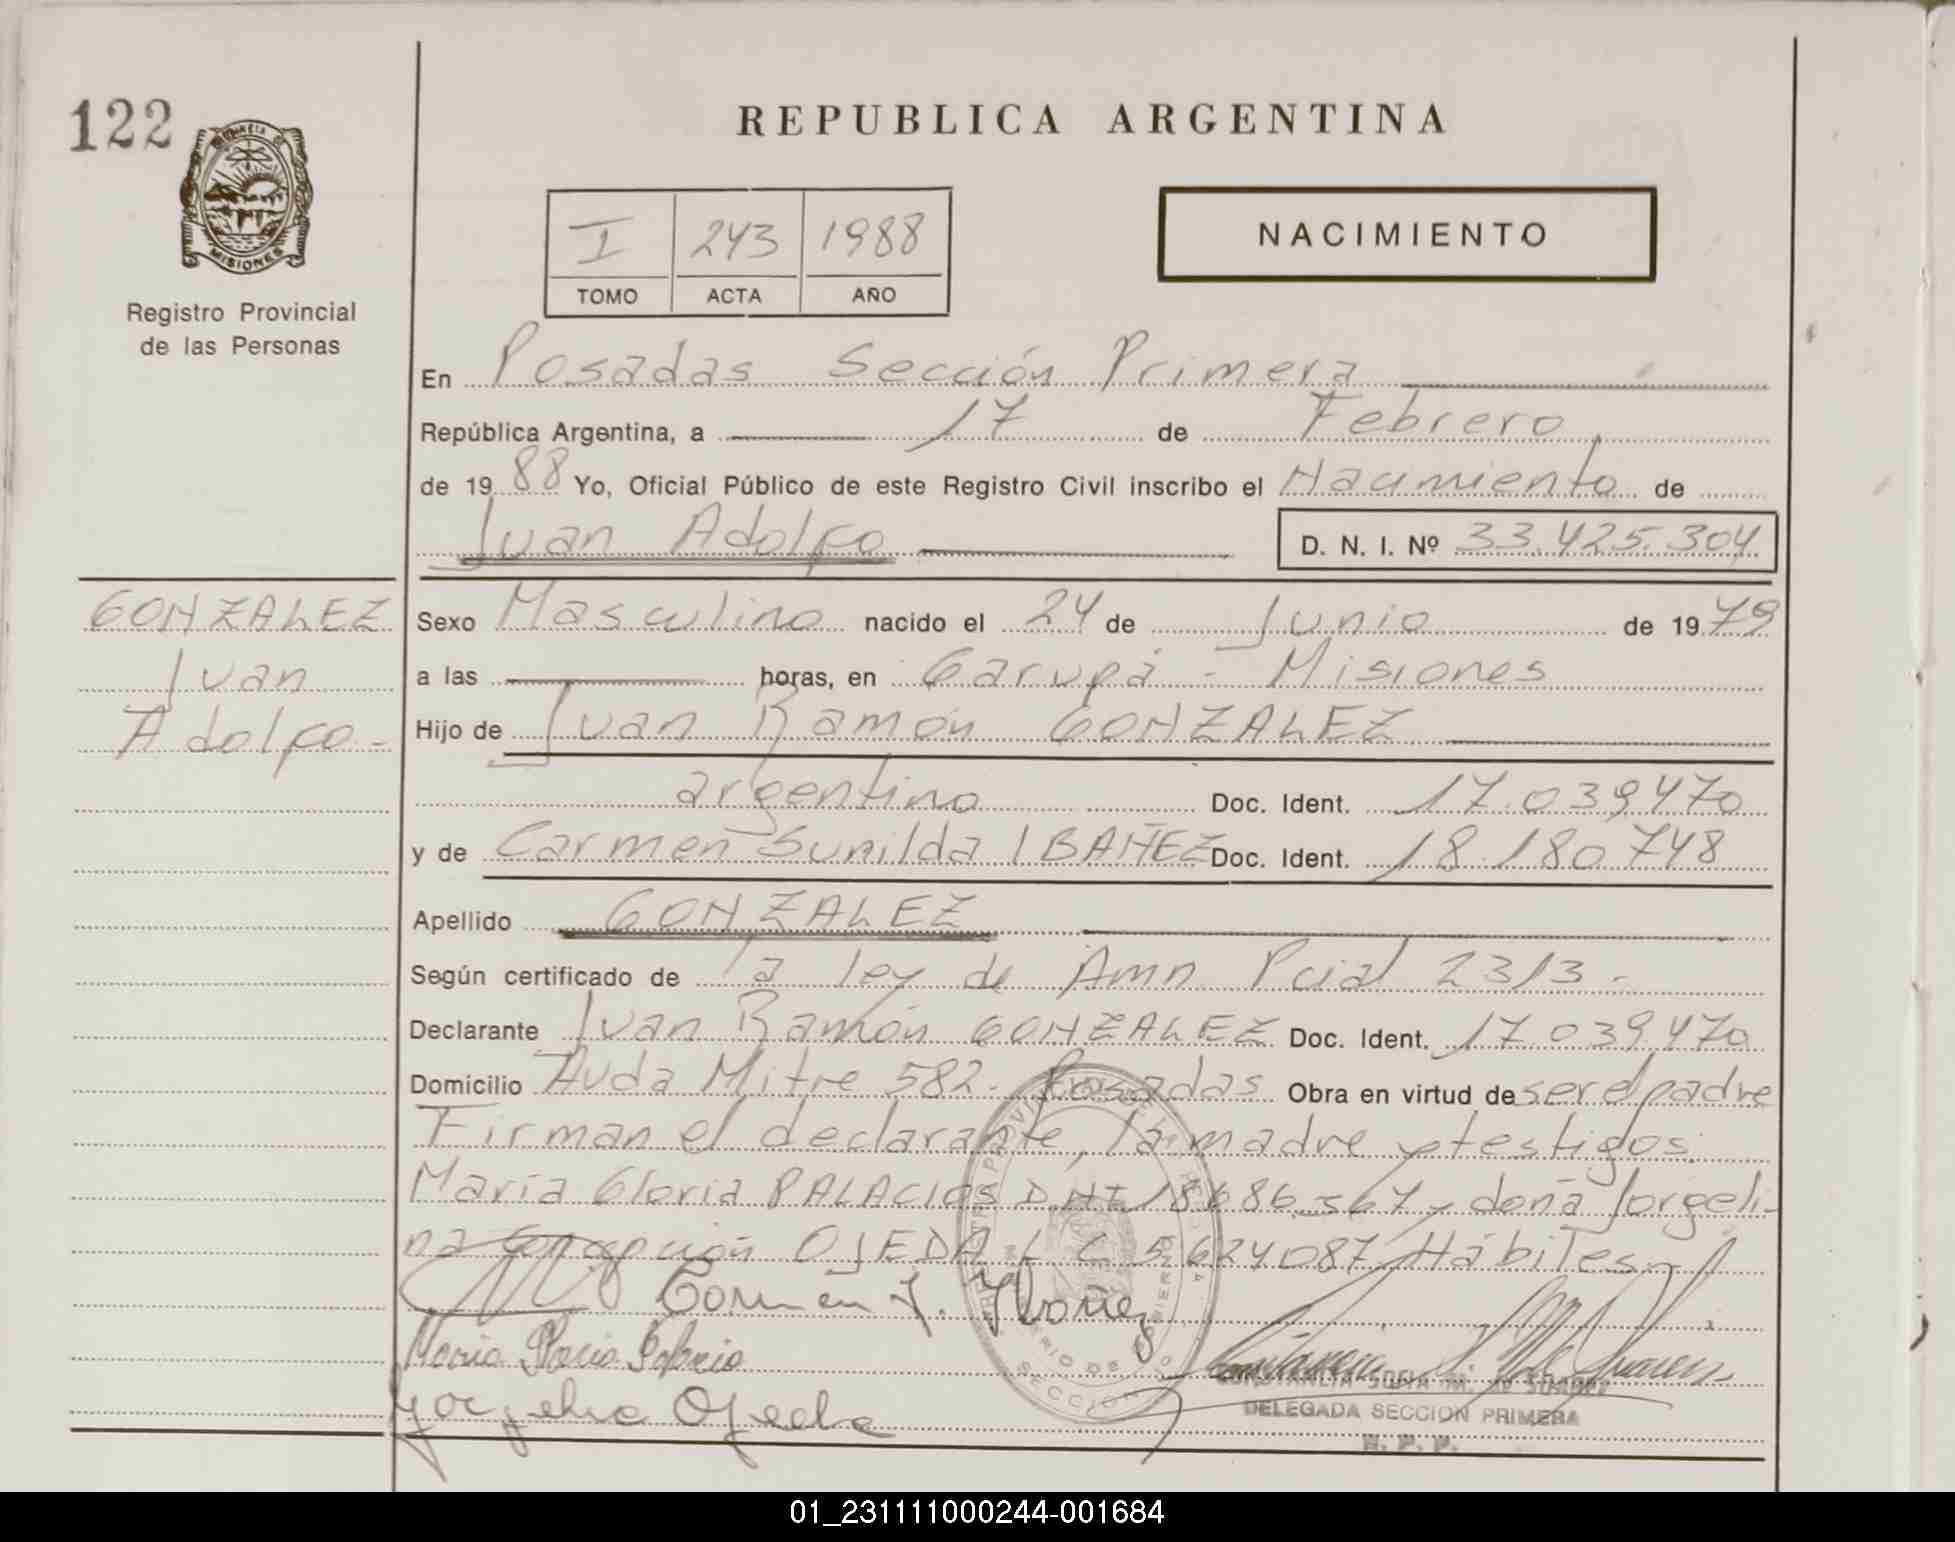 122
REPUBLICA ARGENTINA
MISIONES
Registro Provincial
de las Personas
I 243 1988
TOMO ACTA AÑO
NACIMIENTO
En Posadas Sección Primera
República Argentina, a 17 de Febrero
de 19 88 Yo, Oficial Público de este Registro Civil inscribo el Nacimiento de
Juan Adolfo D. N. I. Nº 33.425.304
GONZALEZ
Juan
Adolfo -
Sexo Masculino nacido el 24 de Junio de 19 79
a las horas, en Garupá - Misiones
Hijo de Juan Ramón GONZALEZ
argentino Doc. Ident. 17.039.470
y de Carmen Sunilda IBAÑEZ Doc. Ident. 18.180.748
Apellido GONZALEZ
Según certificado de la ley de Amn Pcial 2313 -
Declarante Juan Ramón GONZALEZ Doc. Ident. 17.039.470
Domicilio Avda Mitre 582 - Posadas Obra en virtud de ser el padre
Firman el declarante, la madre y testigos:
María Gloria PALACIOS DNI 18.686.567 y doña Jorgeli-
na Concepción OJEDA L C 5624087 Hábiles -
Carmen S. Ybañez
Maria Gloria Palacio
Jorgelina Ojeda
CONSTANCIA SOFIA M. de SUAREZ
DELEGADA SECCION PRIMERA
R. P. P.
01_231111000244-001684